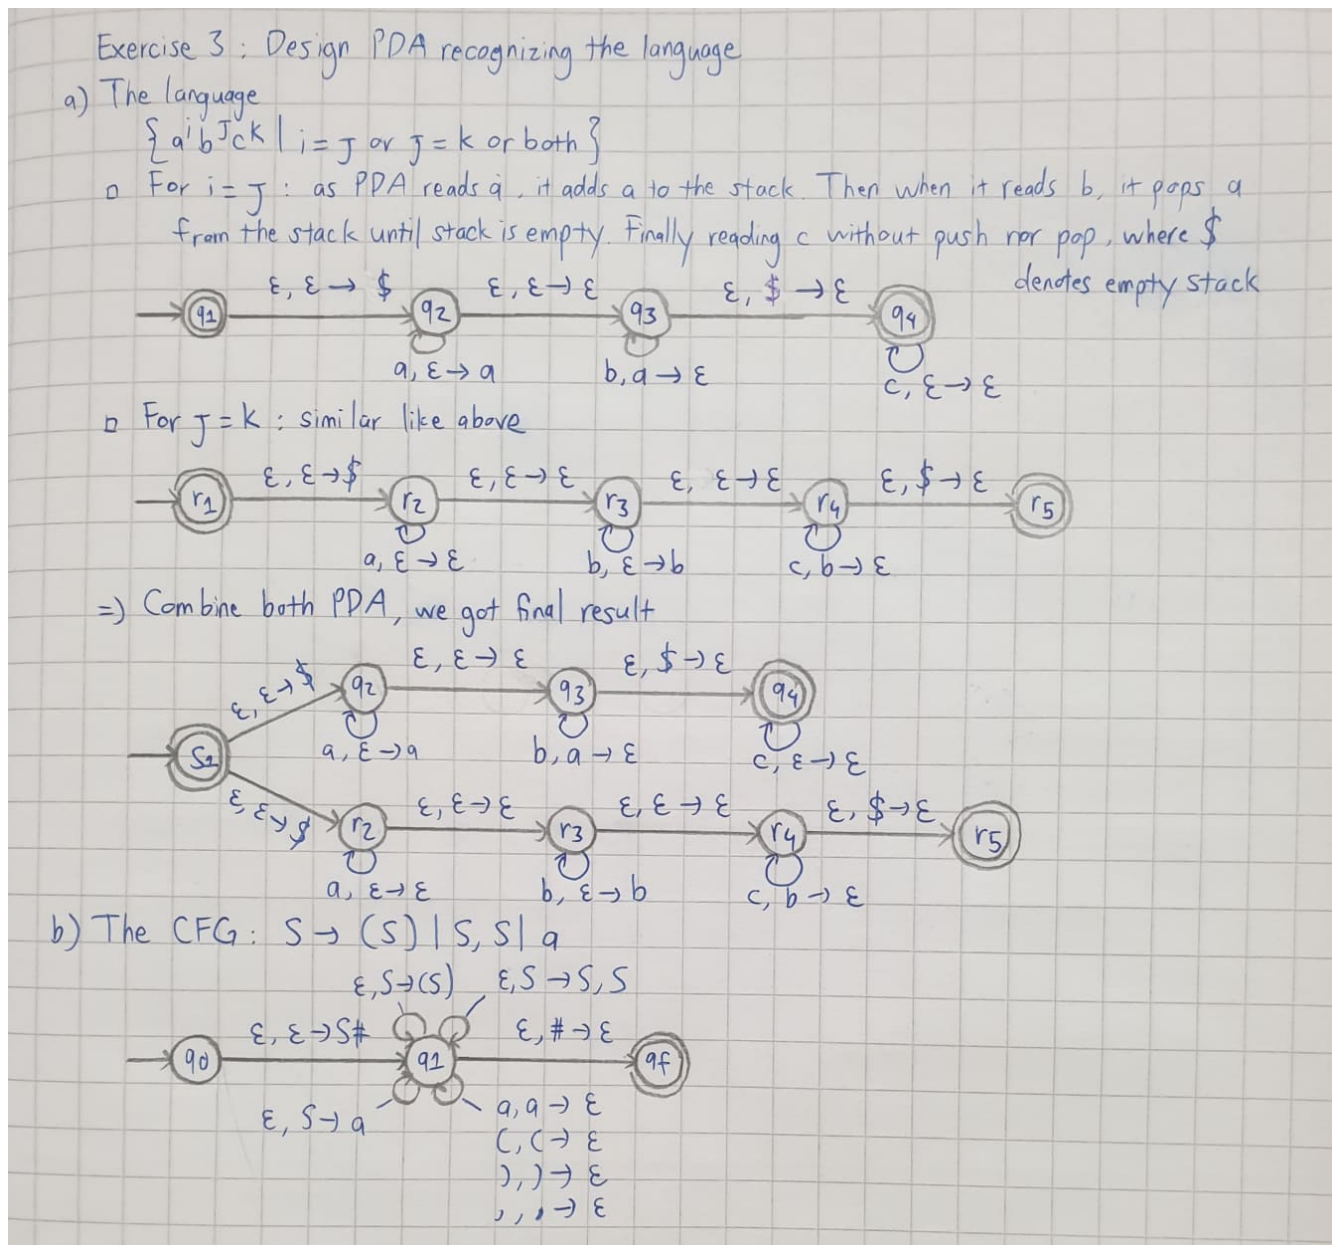 Exercise 3 : Design PDA recognizing the language
a) The language
{ a^i b^J c^K | i = J or J = K or both }
▫ For i = J : as PDA reads a, it adds a to the stack. Then when it reads b, it pops a
from the stack until stack is empty. Finally reading c without push nor pop, where $
denotes empty stack
ε, ε → $ ε, ε → ε ε, $ → ε
q1 q2 q3 q4
a, ε → a b, a → ε c, ε → ε
▫ For J = K : similar like above
ε, ε → $ ε, ε → ε ε, ε → ε ε, $ → ε
r1 r2 r3 r4 r5
a, ε → ε b, ε → b c, b → ε
=) Combine both PDA, we got final result
ε, ε → $ ε, ε → ε ε, $ → ε
q2 q3 q4
a, ε → a b, a → ε c, ε → ε
S1
ε, ε → $ ε, ε → ε ε, ε → ε ε, $ → ε
r2 r3 r4 r5
a, ε → ε b, ε → b c, b → ε
b) The CFG : S → (S) | S, S | a
ε, S → (S) ε, S → S, S
ε, ε → S# ε, # → ε
q0 q1 qf
ε, S → a a, a → ε
(, ( → ε
), ) → ε
, , , → ε